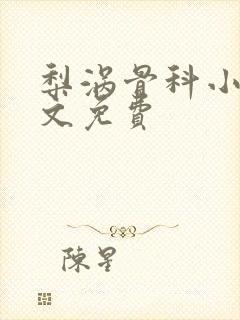 梨涡骨科小
文免费
陳星